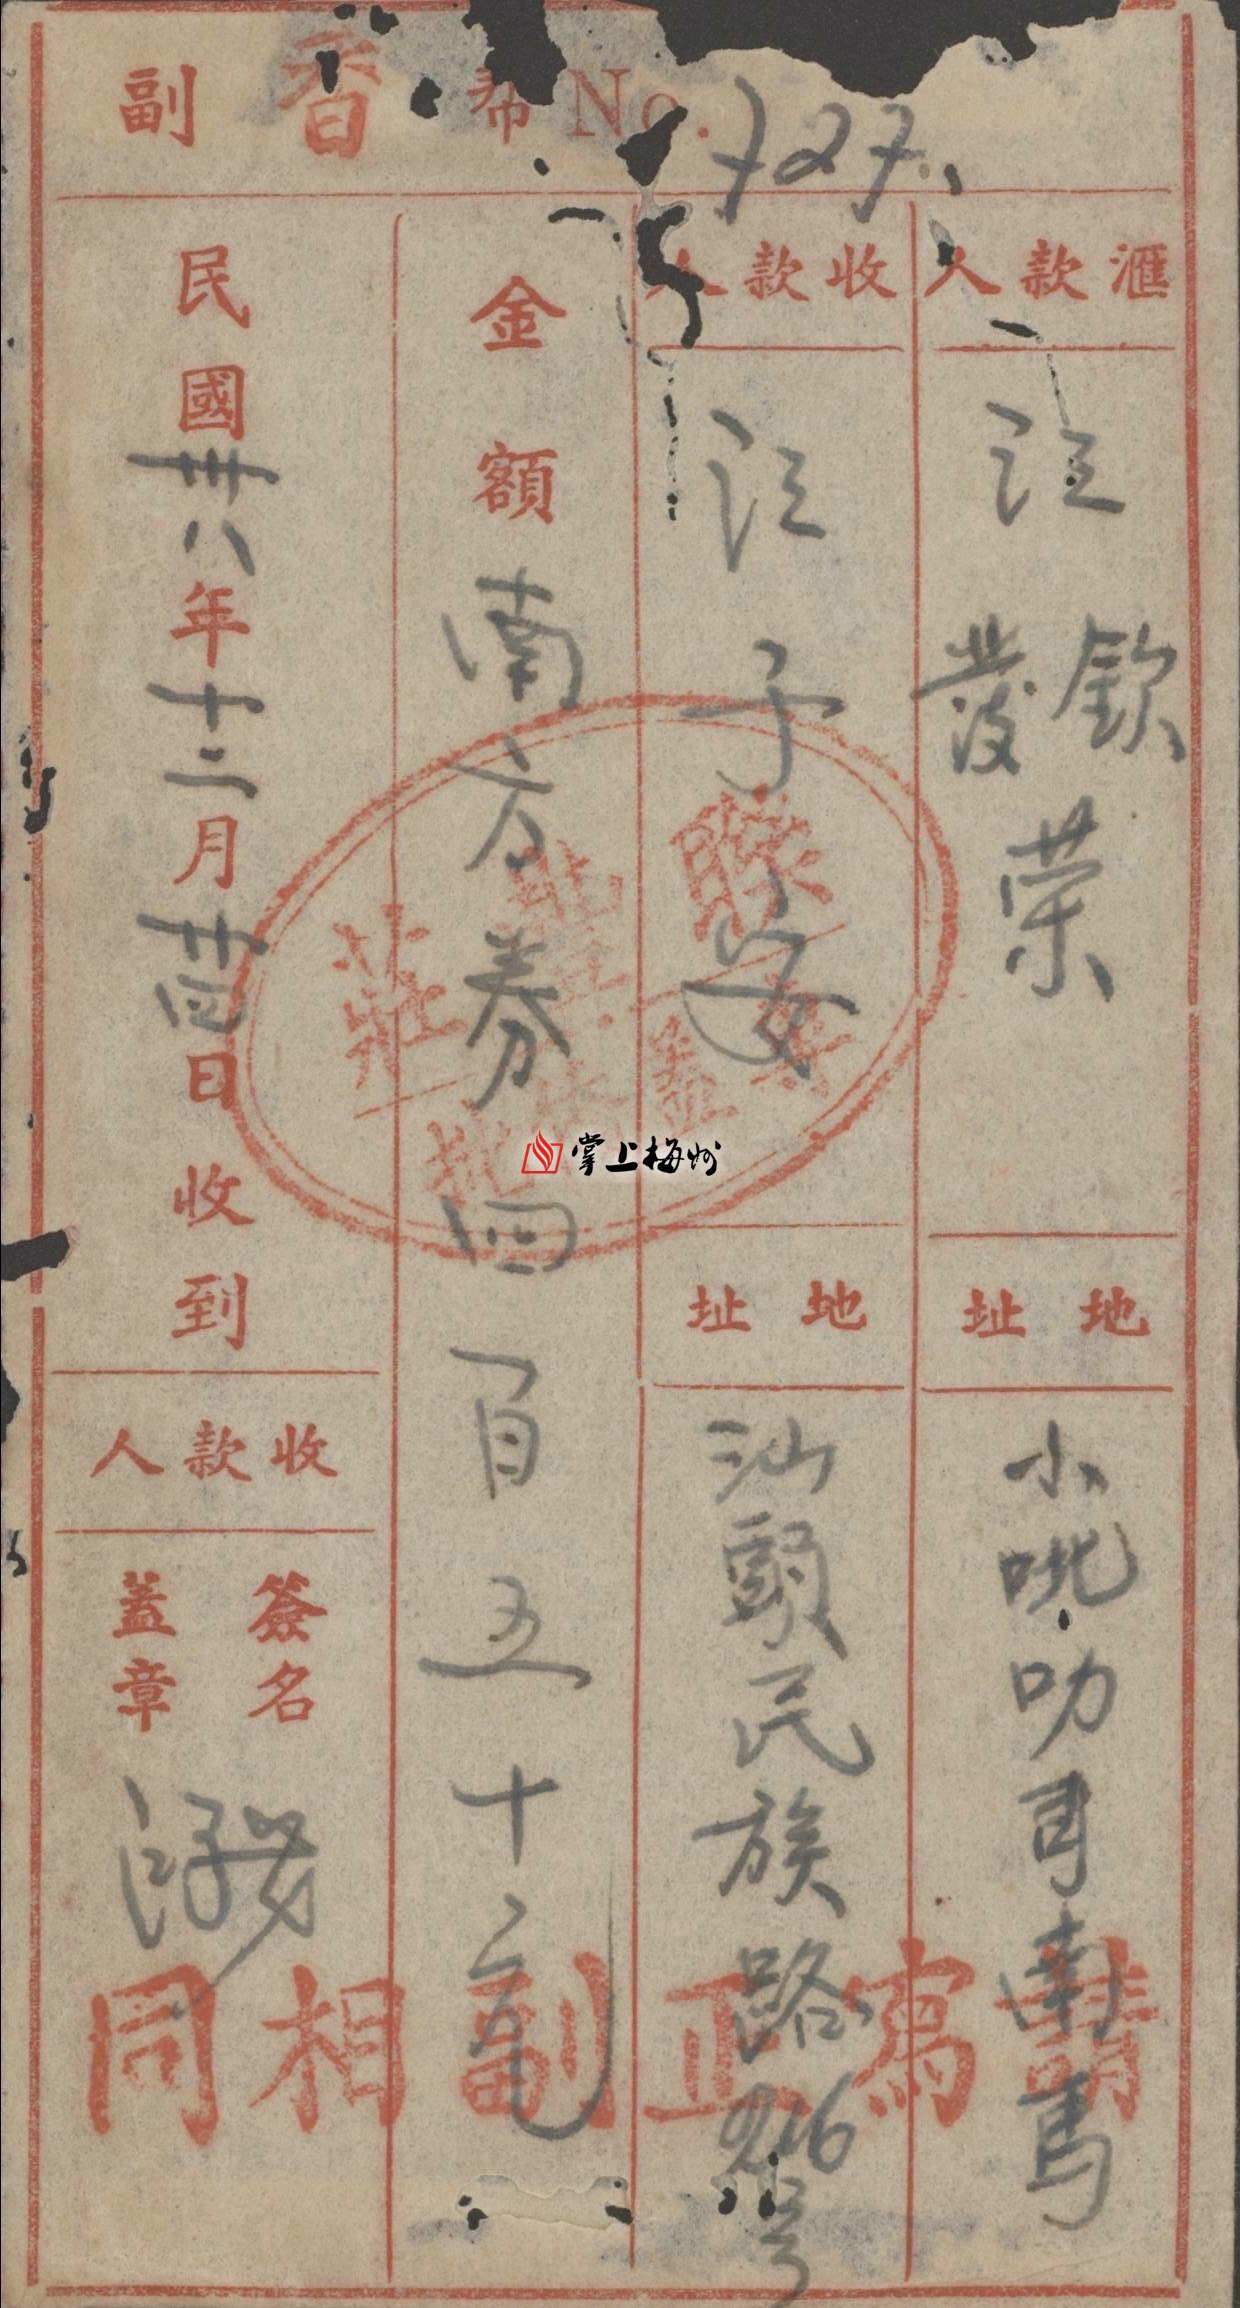 副 香 幣 No. 727
匯款人
江 欽發 荣
地址
小呲叻甲南馬
收款人
江子安
地址
汕頭民族路216号
金額
南方券四百五十元
民國卅八年十二月廿四日收到
收款人
簽名
蓋章
江子安
請寫正副相同
莊
批
掌上梅州